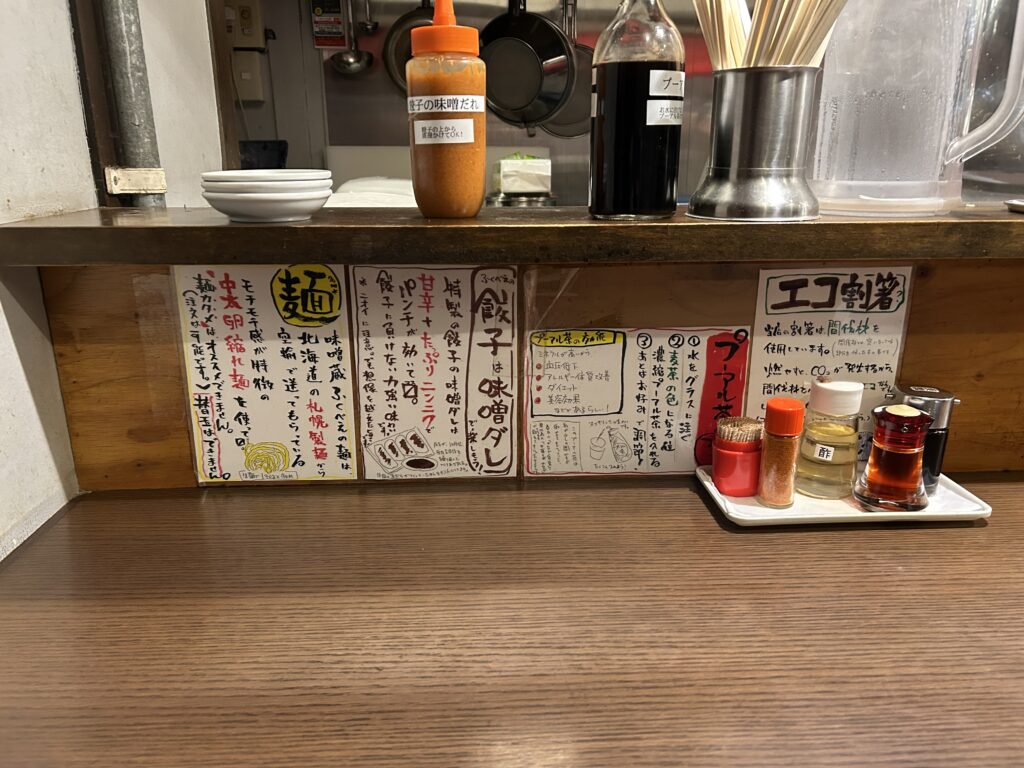 餃子の味噌だれ
餃子の上から
直接かけてOK!
プーア
麺
味噌蔵ふくべえの麺は
北海道の札幌製麺から
空輸で送ってもらっている
モチモチ感が特徴の
中太卵縮れ麺を使用
麺カタメはオススメできません。
(注文は可能です。)替玉はできません。
ふくべえの
餃子は味噌ダレ
で楽しもう!!
特製の餃子の味噌ダレは
甘辛+たっぷりニンニクで
パンチが効いて
餃子に負けない力強い味!!
プーアル茶
①水をグラスに注ぐ
②麦茶の色になる位
濃縮プーアル茶を入れる
③あとはお好みで調節!
プーアル茶の効能
血圧低下
アレルギー体質改善
ダイエット
美容効果
などがあるらしい!
エコ割箸
当店の割箸は間伐材を
使用しています。
燃やすと、CO₂が発生するが、
間伐材
酢